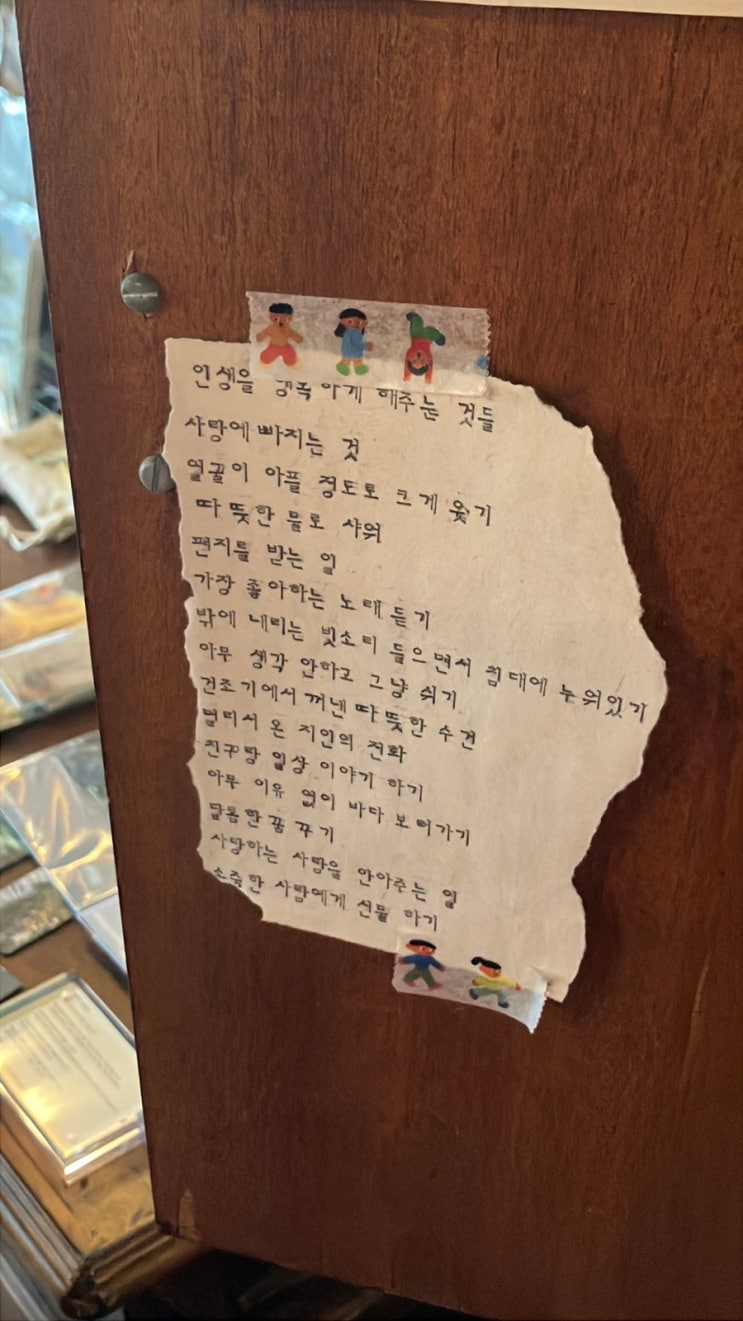 인생을 행복하게 해주는 것들
사랑에 빠지는 것
얼굴이 아플 정도로 크게 웃기
따뜻한 물로 샤워
편지를 받는 일
가장 좋아하는 노래 듣기
밖에 내리는 빗소리 들으면서 침대에 누워있기
아무 생각 안하고 그냥 쉬기
건조기에서 꺼낸 따뜻한 수건
멀리서 온 지인의 전화
친구랑 일상 이야기 하기
아무 이유 없이 바다 보러가기
달콤한 꿈 꾸기
사랑하는 사람을 안아주는 일
소중한 사람에게 선물 하기